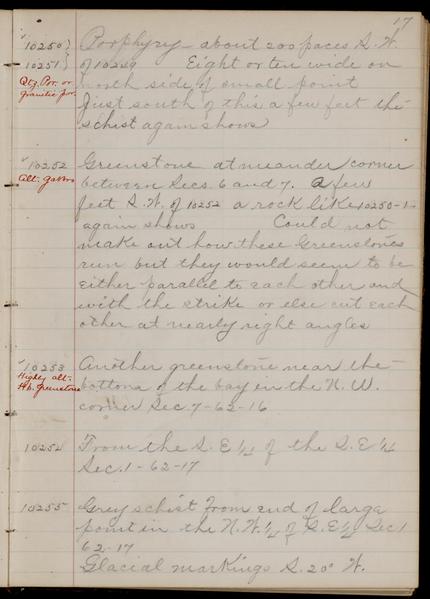 17
10250 } Porphyry - about 200 paces S.W.
10251 } of 10249 Eight or ten wide on
Qtz. Por. or north side of small point
granitic por. Just south of this a few feet the
schist again shows
10252 Greenstone at meander corner
Alt. gabbro between Secs. 6 and 7. a few
feet S.W. of 10252 a rock like 10250-1
again shows Could not
make out how these Greenstones
run but they would seem to be
either parallel to each other and
with the strike or else cut each
other at nearly right angles
10253 Another greenstone near the
Highly alt. bottom of the bay in the N.W.
Hb. greenstone corner Sec. 7-62-16
10254 From the S.E 1/4 of the S.E 1/4
Sec. 1-62-17
10255 Grey schist from end of large
point in the N.W. 1/4 of S.E 1/4 Sec 1
62-17
Glacial markings S. 20° W.